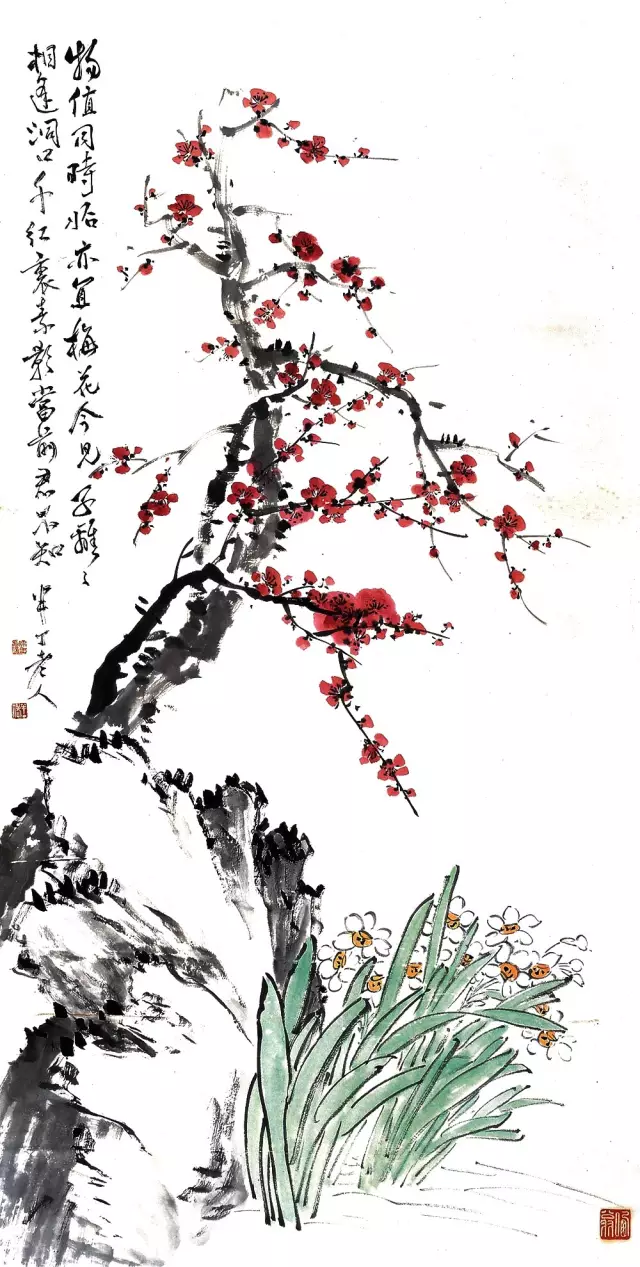 物值同時恰亦宜梅花今見子離離
相逢洞口千紅裏素影當前君不知
半丁老人